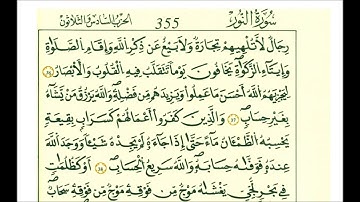 سُورَةُ النُّورِ 355 الحِزْبُ السَّادِسُ وَالثَّلَاثُونَ
رِجَالٌ لَا تُلْهِيهِمْ تِجَارَةٌ وَلَا بَيْعٌ عَن ذِكْرِ اللَّهِ وَإِقَامِ الصَّلَوٰةِ
وَإِيتَاءِ الزَّكَوٰةِ يَخَافُونَ يَوْمًا تَتَقَلَّبُ فِيهِ الْقُلُوبُ وَالْأَبْصَارُ
لِيَجْزِيَهُمُ اللَّهُ أَحْسَنَ مَا عَمِلُوا وَيَزِيدَهُم مِّن فَضْلِهِ وَاللَّهُ يَرْزُقُ مَن يَشَاءُ
بِغَيْرِ حِسَابٍ وَالَّذِينَ كَفَرُوا أَعْمَالُهُمْ كَسَرَابٍ بِقِيعَةٍ
يَحْسَبُهُ الظَّمْـَٔانُ مَاءً حَتَّىٰ إِذَا جَاءَهُ لَمْ يَجِدْهُ شَيْـًٔا وَوَجَدَ اللَّهَ
عِندَهُ فَوَفَّىٰهُ حِسَابَهُ وَاللَّهُ سَرِيعُ الْحِسَابِ أَوْ كَظُلُمَاتٍ
فِي بَحْرٍ لُّجِّيٍّ يَغْشَىٰهُ مَوْجٌ مِّن فَوْقِهِ مَوْجٌ مِّن فَوْقِهِ سَحَابٌ